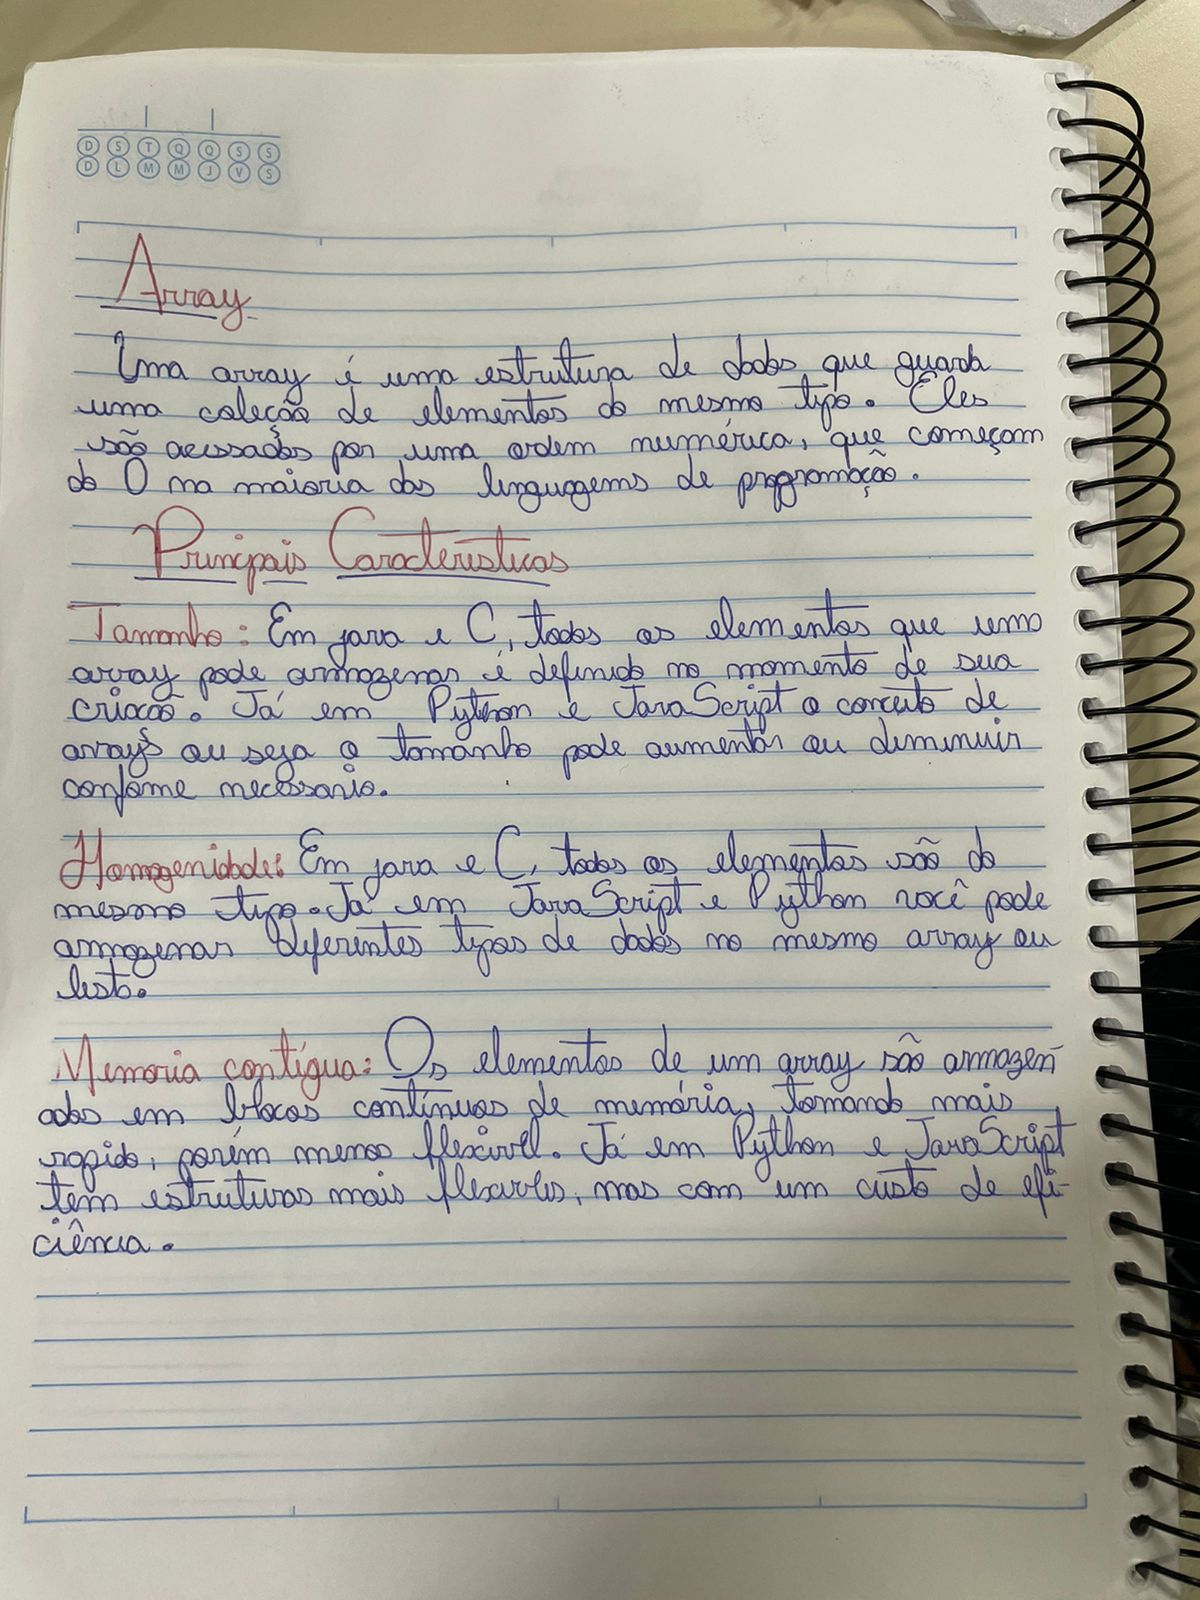 D S T Q Q S S
D L M M J V S
Array
Uma array é uma estrutura de dados que guarda
uma coleção de elementos do mesmo tipo. Eles
são acessados por uma ordem numérica, que começam
do 0 na maioria das linguagens de programação.
Principais Características
Tamanho: Em java e C, todos os elementos que uma
array pode armazenar é definido no momento de sua
criação. Já em Python e JavaScript o conceito de
arrays ou seja o tamanho pode aumentar ou diminuir
confome necessario.
Homogenidade: Em java e C, todos os elementos são do
mesmo tipo. Já em JavaScript e Python você pode
armazenar diferentes tipos de dados no mesmo array ou
lista.
Memoria contígua: Os elementos de um array são armazen
ados em blocos contínuos de memória, tornando mais
rapido, porém menos flexível. Já em Python e JavaScript
tem estruturas mais flexiveis, mas com um custo de efi-
ciência.